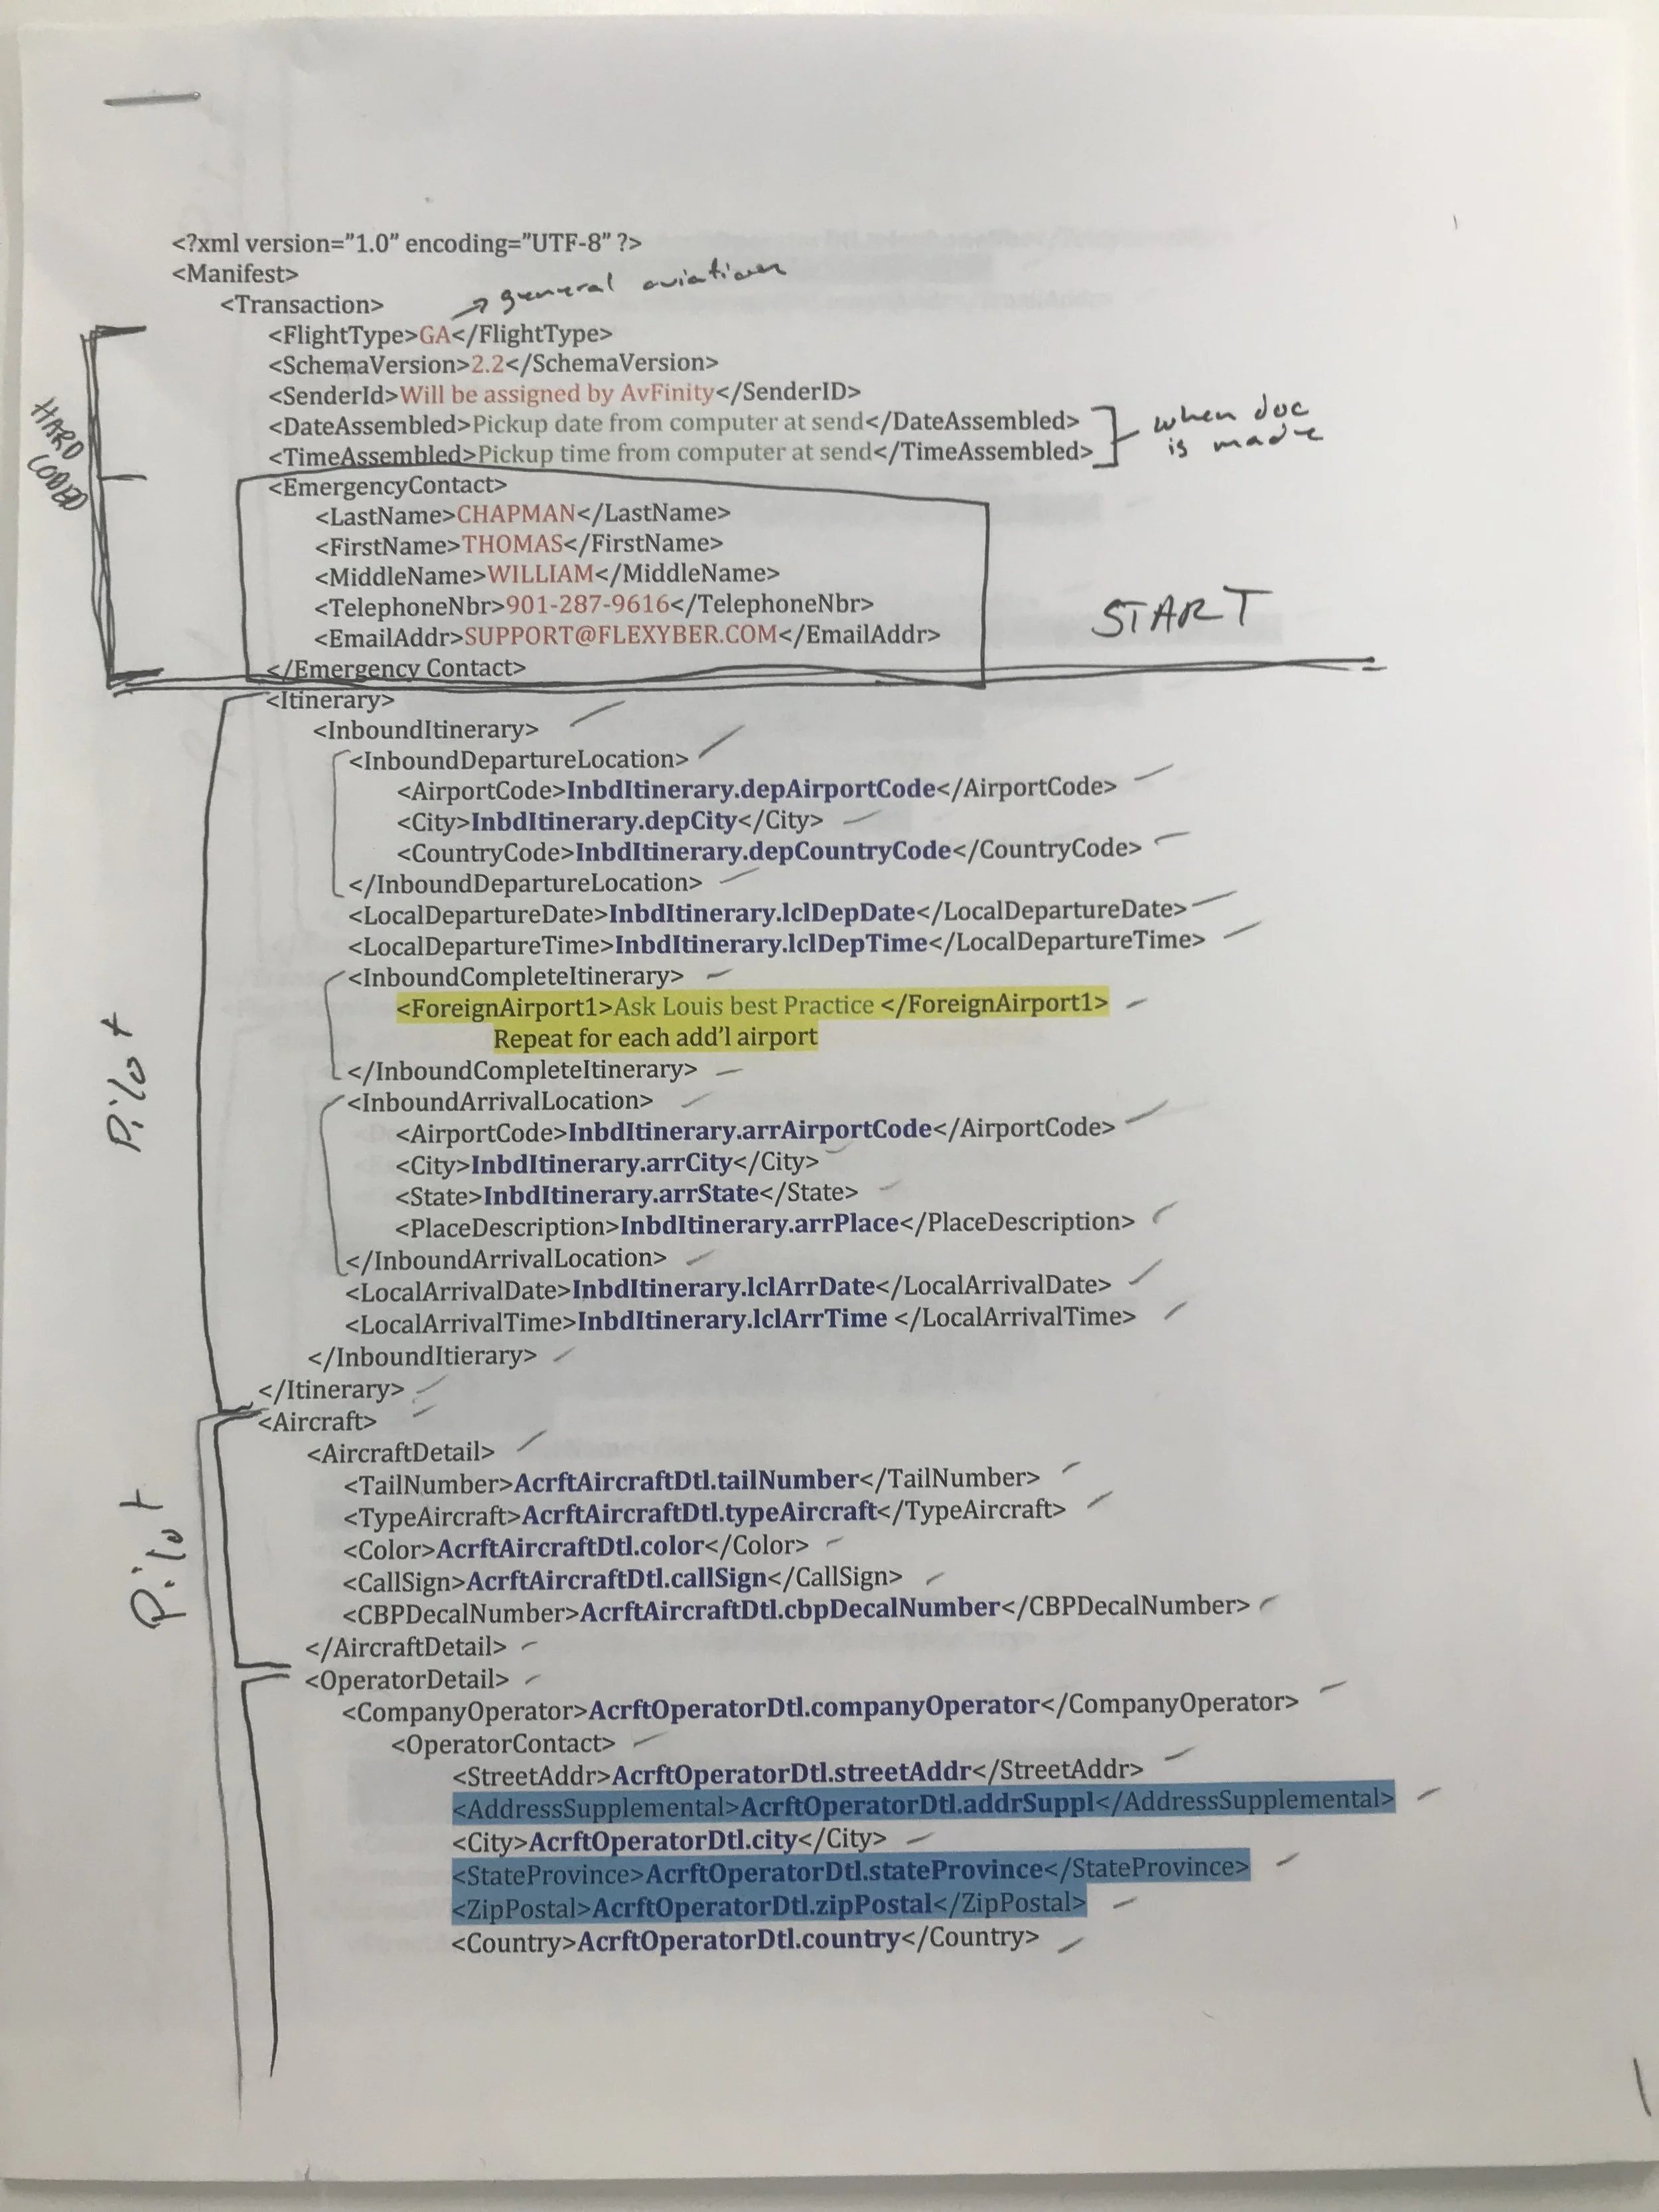 <?xml version="1.0" encoding="UTF-8" ?>
<Manifest>
<Transaction>
→ general aviation
<FlightType>GA</FlightType>
<SchemaVersion>2.2</SchemaVersion>
<SenderId>Will be assigned by AvFinity</SenderID>
<DateAssembled>Pickup date from computer at send</DateAssembled>
<TimeAssembled>Pickup time from computer at send</TimeAssembled>
when doc
is made
HARD
CODED
<EmergencyContact>
<LastName>CHAPMAN</LastName>
<FirstName>THOMAS</FirstName>
<MiddleName>WILLIAM</MiddleName>
<TelephoneNbr>901-287-9616</TelephoneNbr>
<EmailAddr>SUPPORT@FLEXYBER.COM</EmailAddr>
START
</Emergency Contact>
<Itinerary>
<InboundItinerary>
<InboundDepartureLocation>
<AirportCode>InbdItinerary.depAirportCode</AirportCode>
<City>InbdItinerary.depCity</City>
<CountryCode>InbdItinerary.depCountryCode</CountryCode>
</InboundDepartureLocation>
<LocalDepartureDate>InbdItinerary.lclDepDate</LocalDepartureDate>
<LocalDepartureTime>InbdItinerary.lclDepTime</LocalDepartureTime>
<InboundCompleteItinerary>
<ForeignAirport1>Ask Louis best Practice </ForeignAirport1>
Repeat for each add'l airport
</InboundCompleteItinerary>
Pilot
<InboundArrivalLocation>
<AirportCode>InbdItinerary.arrAirportCode</AirportCode>
<City>InbdItinerary.arrCity</City>
<State>InbdItinerary.arrState</State>
<PlaceDescription>InbdItinerary.arrPlace</PlaceDescription>
</InboundArrivalLocation>
<LocalArrivalDate>InbdItinerary.lclArrDate</LocalArrivalDate>
<LocalArrivalTime>InbdItinerary.lclArrTime </LocalArrivalTime>
</InboundItierary>
</Itinerary>
<Aircraft>
<AircraftDetail>
<TailNumber>AcrftAircraftDtl.tailNumber</TailNumber>
<TypeAircraft>AcrftAircraftDtl.typeAircraft</TypeAircraft>
<Color>AcrftAircraftDtl.color</Color>
Pilot
<CallSign>AcrftAircraftDtl.callSign</CallSign>
<CBPDecalNumber>AcrftAircraftDtl.cbpDecalNumber</CBPDecalNumber>
</AircraftDetail>
<OperatorDetail>
<CompanyOperator>AcrftOperatorDtl.companyOperator</CompanyOperator>
<OperatorContact>
<StreetAddr>AcrftOperatorDtl.streetAddr</StreetAddr>
<AddressSupplemental>AcrftOperatorDtl.addrSuppl</AddressSupplemental>
<City>AcrftOperatorDtl.city</City>
<StateProvince>AcrftOperatorDtl.stateProvince</StateProvince>
<ZipPostal>AcrftOperatorDtl.zipPostal</ZipPostal>
<Country>AcrftOperatorDtl.country</Country>